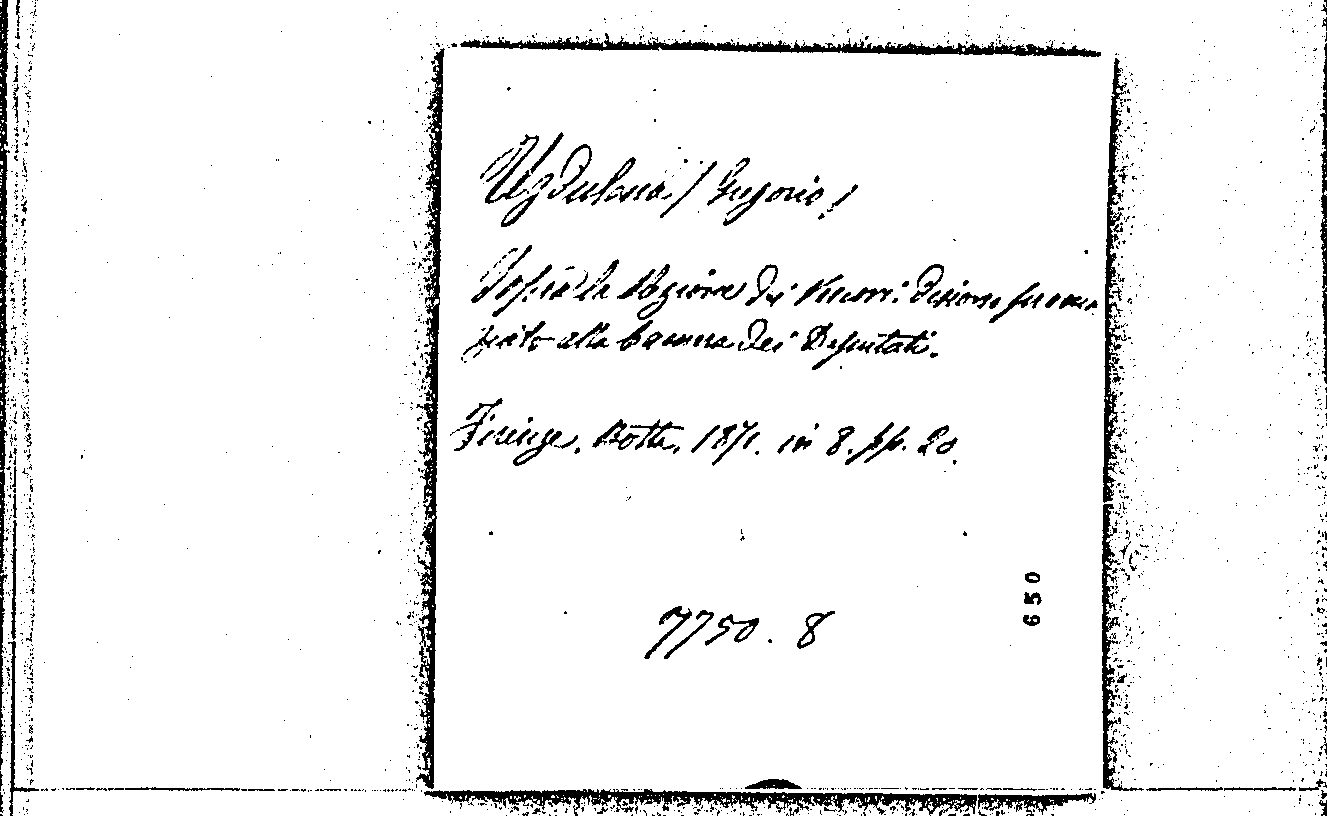 Ugdulena / Gregorio /
Sopra la elezione dei Vescovi. Discorso pronun
ziato alla Camera dei Deputati.
Firenze. Botta. 1871. in 8. pp. 20.
7750. 8
650